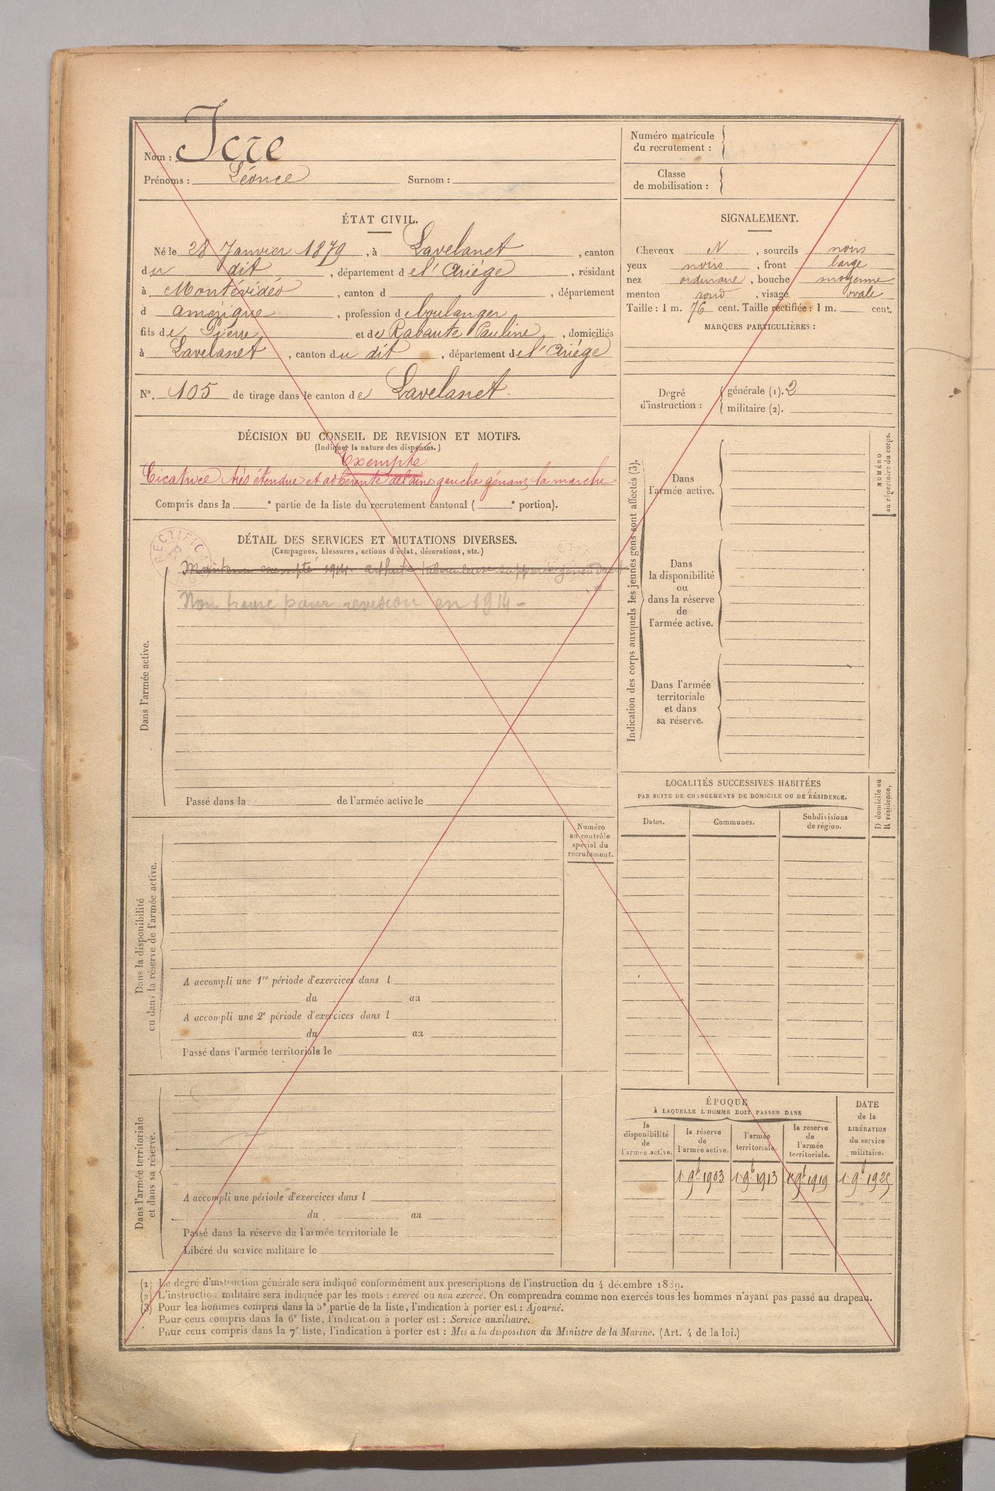 Nom : Icre
Prénoms : Léonce Surnom :
Numéro matricule
du recrutement :
Classe
de mobilisation :
ÉTAT CIVIL.
Né le 28 Janvier 1879, à Lavelanet, canton
du dit, département de l'Ariége, résidant
à Montévidéo, canton d , département
d amérique, profession de boulanger
fils de Pierre et de Rabaute Pauline, domiciliés
à Lavelanet, canton du dit, département de l'Ariége
N°. 105 de tirage dans le canton de Lavelanet.
SIGNALEMENT.
Cheveux N, sourcils noirs
yeux noirs, front large
nez ordinaire, bouche moyenne
menton rond, visage ovale
Taille : 1 m. 76 cent. Taille rectifiée : 1 m. cent.
MARQUES PARTICULIÈRES :
Degré
d'instruction :
générale (1). 2
militaire (2).
DÉCISION DU CONSEIL DE REVISION ET MOTIFS.
(Indiquer la nature des dispenses.)
Exempté
Cicatrice très étendue et adhérente de l'aine gauche gênant la marche
Compris dans la e partie de la liste du recrutement cantonal ( e portion).
DÉTAIL DES SERVICES ET MUTATIONS DIVERSES.
(Campagnes, blessures, actions d'éclat, décorations, etc.)
RECTIFICA
exempté 1914
Non trouvé pour revision en 1914 -
Dans l'armée active.
Passé dans la de l'armée active le
Indication des corps auxquels les jeunes gens sont affectés (3).
NUMÉRO
au répertoire du corps.
Dans
l'armée active.
Dans
la disponibilité
ou
dans la réserve
de
l'armée active.
Dans l'armée
territoriale
et dans
sa réserve.
LOCALITÉS SUCCESSIVES HABITÉES
PAR SUITE DE CHANGEMENTS DE DOMICILE OU DE RÉSIDENCE.
Dates. Communes. Subdivisions
de région.
D domicile ou
R résidence.
Numéro
au contrôle
spécial du
recrutement.
Dans la disponibilité
ou dans la réserve de l'armée active.
A accompli une 1re période d'exercices dans l
du au
A accompli une 2e période d'exercices dans l
du au
Passé dans l'armée territoriale le
Dans l'armée territoriale
et dans sa réserve.
A accompli une période d'exercices dans l
du au
Passé dans la réserve de l'armée territoriale le
Libéré du service militaire le
ÉPOQUE
À LAQUELLE L'HOMME DOIT PASSER DANS
la
disponibilité
de
l'armée active.
la réserve
de
l'armée active.
l'armée
territoriale.
la réserve
de
l'armée
territoriale.
DATE
de la
LIBÉRATION
du service
militaire.
1 9bre 1903 1 9bre 1913 1 9bre 1919 1 9bre 1925
(1) Le degré d'instruction générale sera indiqué conformément aux prescriptions de l'instruction du 4 décembre 1889.
(2) L'instruction militaire sera indiquée par les mots : exercé ou non exercé. On comprendra comme non exercés tous les hommes n'ayant pas passé au drapeau.
(3) Pour les hommes compris dans la 5e partie de la liste, l'indication à porter est : Ajourné.
Pour ceux compris dans la 6e liste, l'indication à porter est : Service auxiliaire.
Pour ceux compris dans la 7e liste, l'indication à porter est : Mis à la disposition du Ministre de la Marine. (Art. 4 de la loi.)